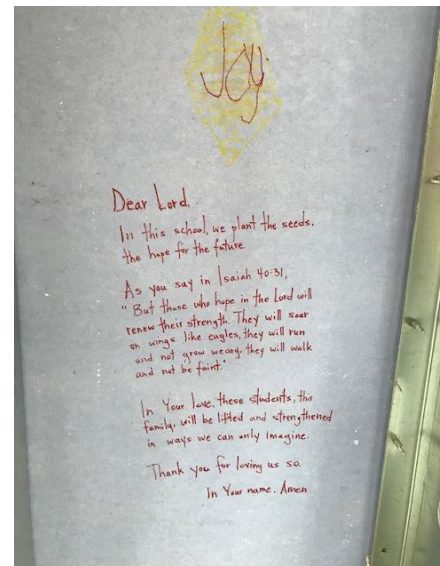 Joy
Dear Lord,
In this school, we plant the seeds,
the hope for the future.
As you say in Isaiah 40:31,
"But those who hope in the Lord will
renew their strength. They will soar
on wings like eagles, they will run
and not grow weary, they will walk
and not be faint."
In Your love, these students, this
family, will be lifted and strengthened
in ways we can only imagine.
Thank you for loving us so.
In Your name, Amen